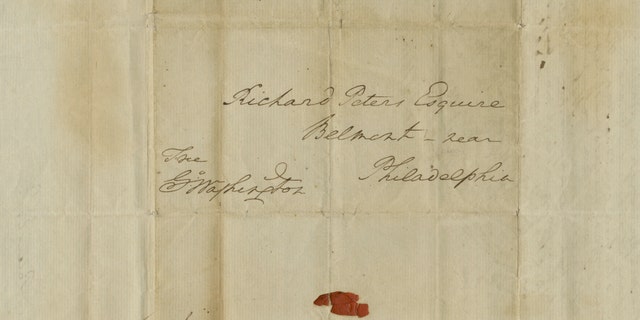 Richard Peters Esquire
Belmont – near
Philadelphia
Free
Go Washington